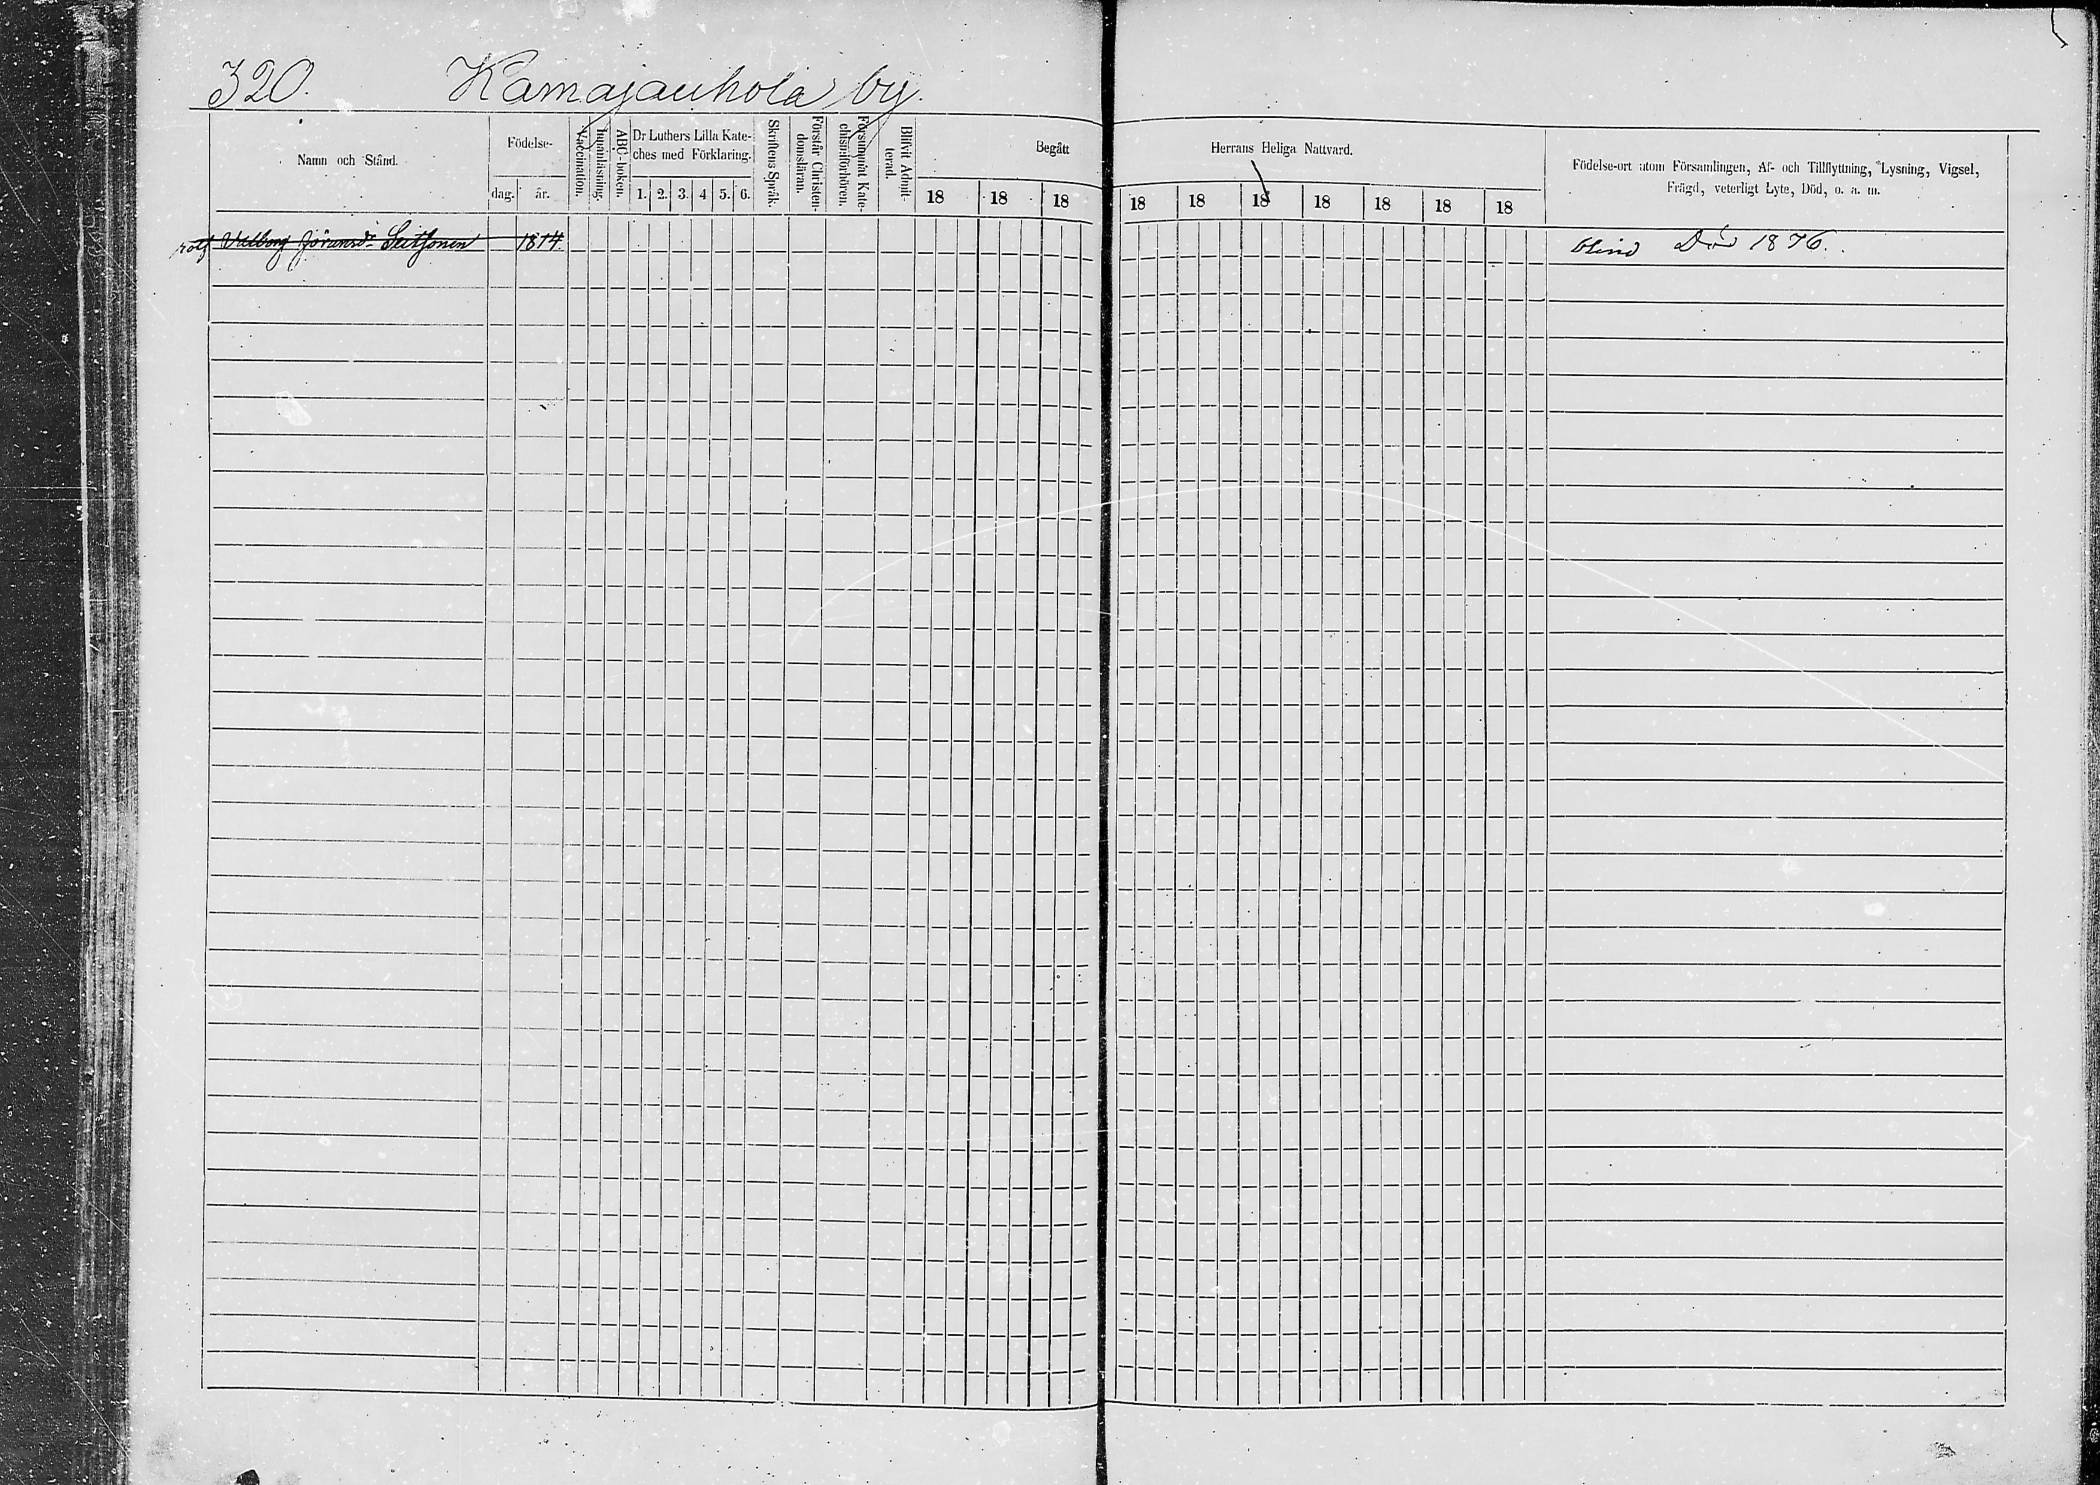 320. Kamajauhola by.
Namn och Stånd.
Födelse-
dag. år.
Vaccination.
Innanläsning.
ABC-boken.
Dr Luthers Lilla Kate-
ches med Förklaring.
1. 2. 3. 4 5. 6.
Skriftens Språk.
Förstår Christen-
domsläran.
Försummat Kate-
chismiförhören.
Blifvit Admit-
terad.
Begått Herrans Heliga Nattvard.
18 18 18 18 18 18 18 18 18 18
Födelse-ort utom Församlingen, Af- och Tillflyttning, Lysning, Vigsel,
Frägd, veterligt Lyte, Död, o. a. m.
Valborg Göransdr Seitsonen 1814 blind Död 1876.